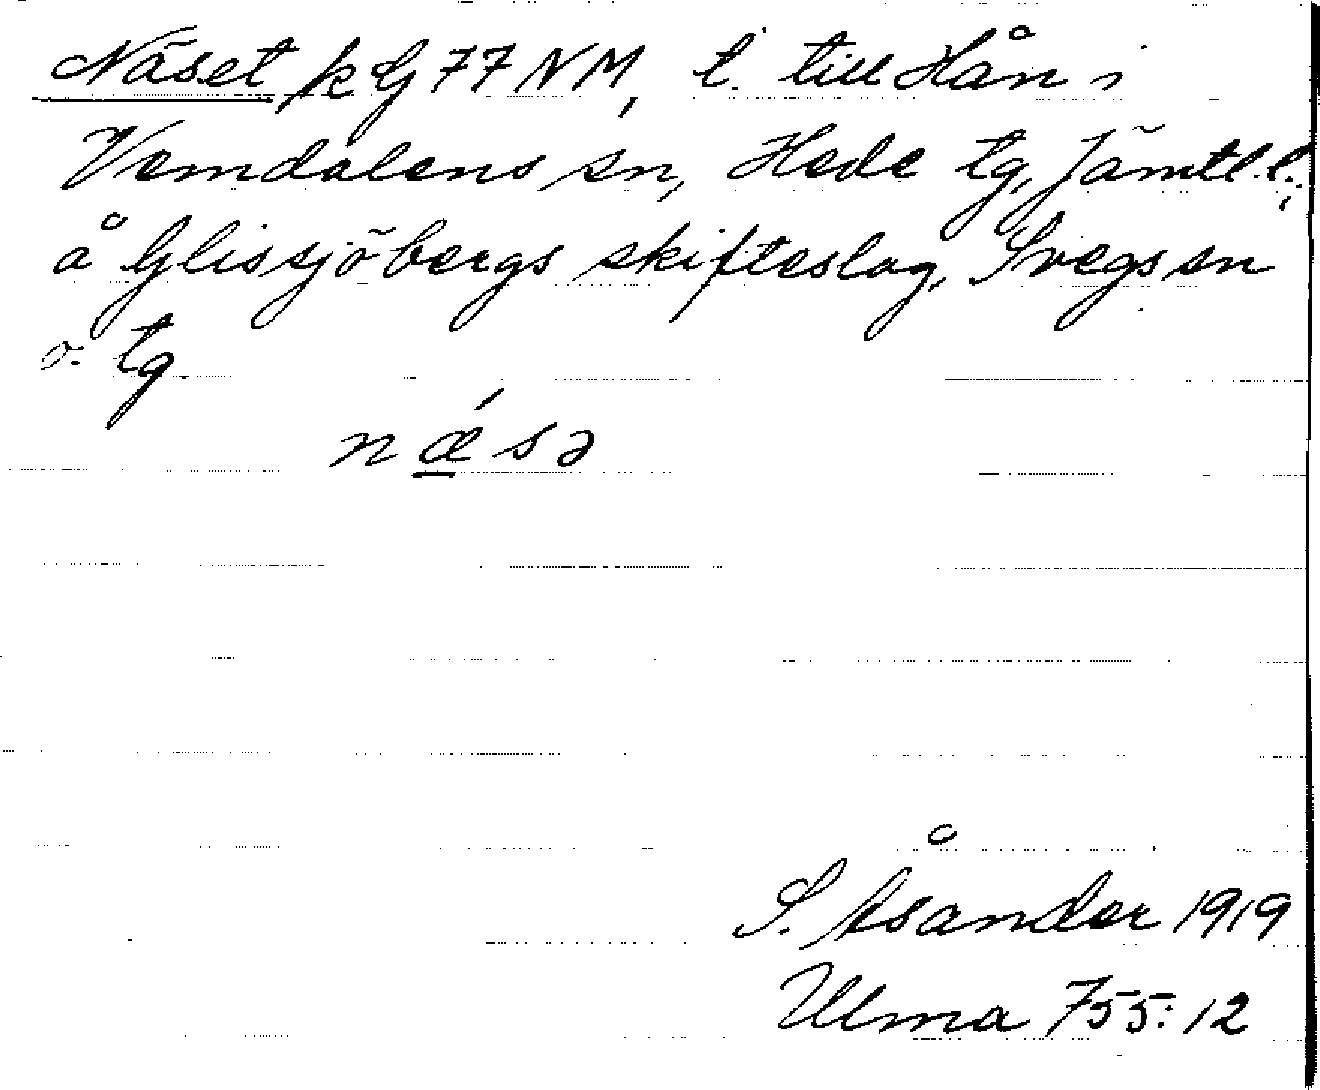 Näset k G 77 NM, t. till Hån i
Vemdalens sn, Hede tg, Jämtl. l.;
å Glissjöbergs skifteslag, Svegs sn
o. tg
næ´sə
S. Åsander 1919
Ulma 755:12